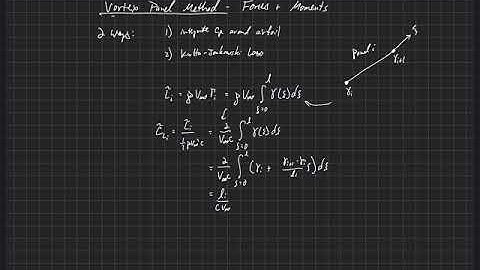 Vortex Panel Method - Forces + Moments
2 ways: 1) integrate Cp around airfoil
2) Kutta-Joukowski Law
ξ
panel i
γᵢ₊₁
γᵢ
L̃ᵢ = ρV∞Γᵢ = ρV∞ ∫_{ξ=0}^{l} γ(ξ)dξ
C̃_{Lᵢ} = L̃ᵢ / ½ρV∞²c = 2/V∞c ∫_{ξ=0}^{l} γ(ξ)dξ
= 2/V∞c ∫_{ξ=0}^{l} (γᵢ + (γᵢ₊₁-γᵢ)/lᵢ ξ)dξ
= lᵢ/cV∞